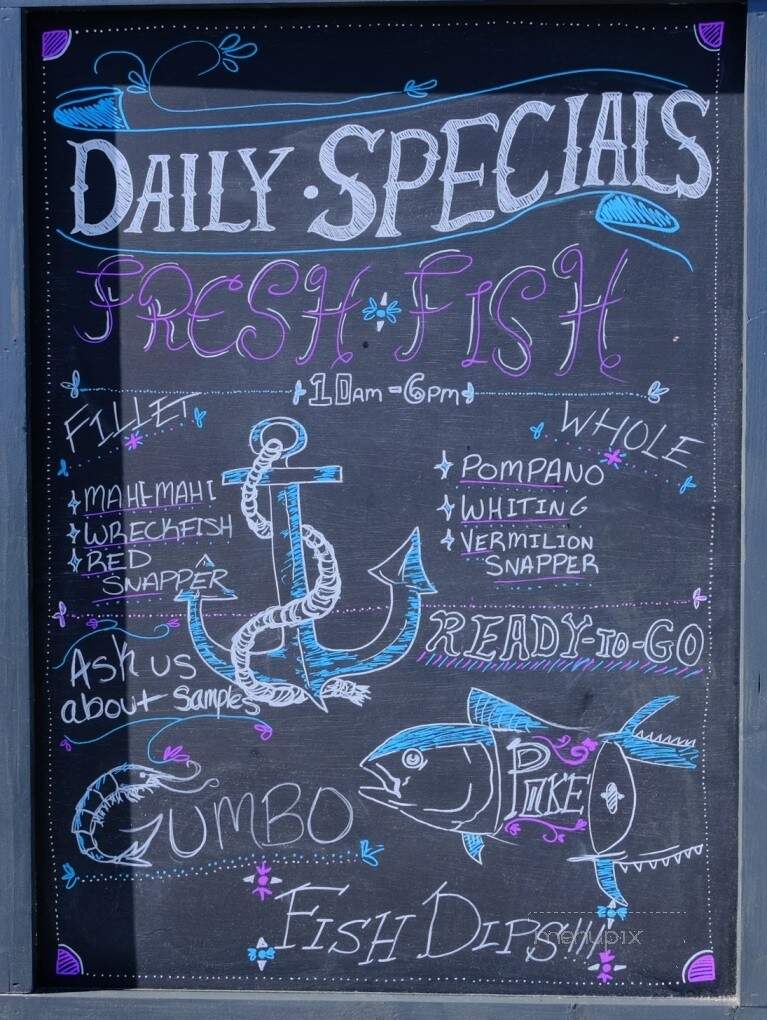 DAILY · SPECIALS
FRESH FISH
10AM - 6PM
FILLET
MAHI-MAHI
WRECKFISH
RED
SNAPPER
WHOLE
POMPANO
WHITING
VERMILION
SNAPPER
Ask us
about Samples
READY-TO-GO
POKE
GUMBO
FISH DIPS!!!
menupix